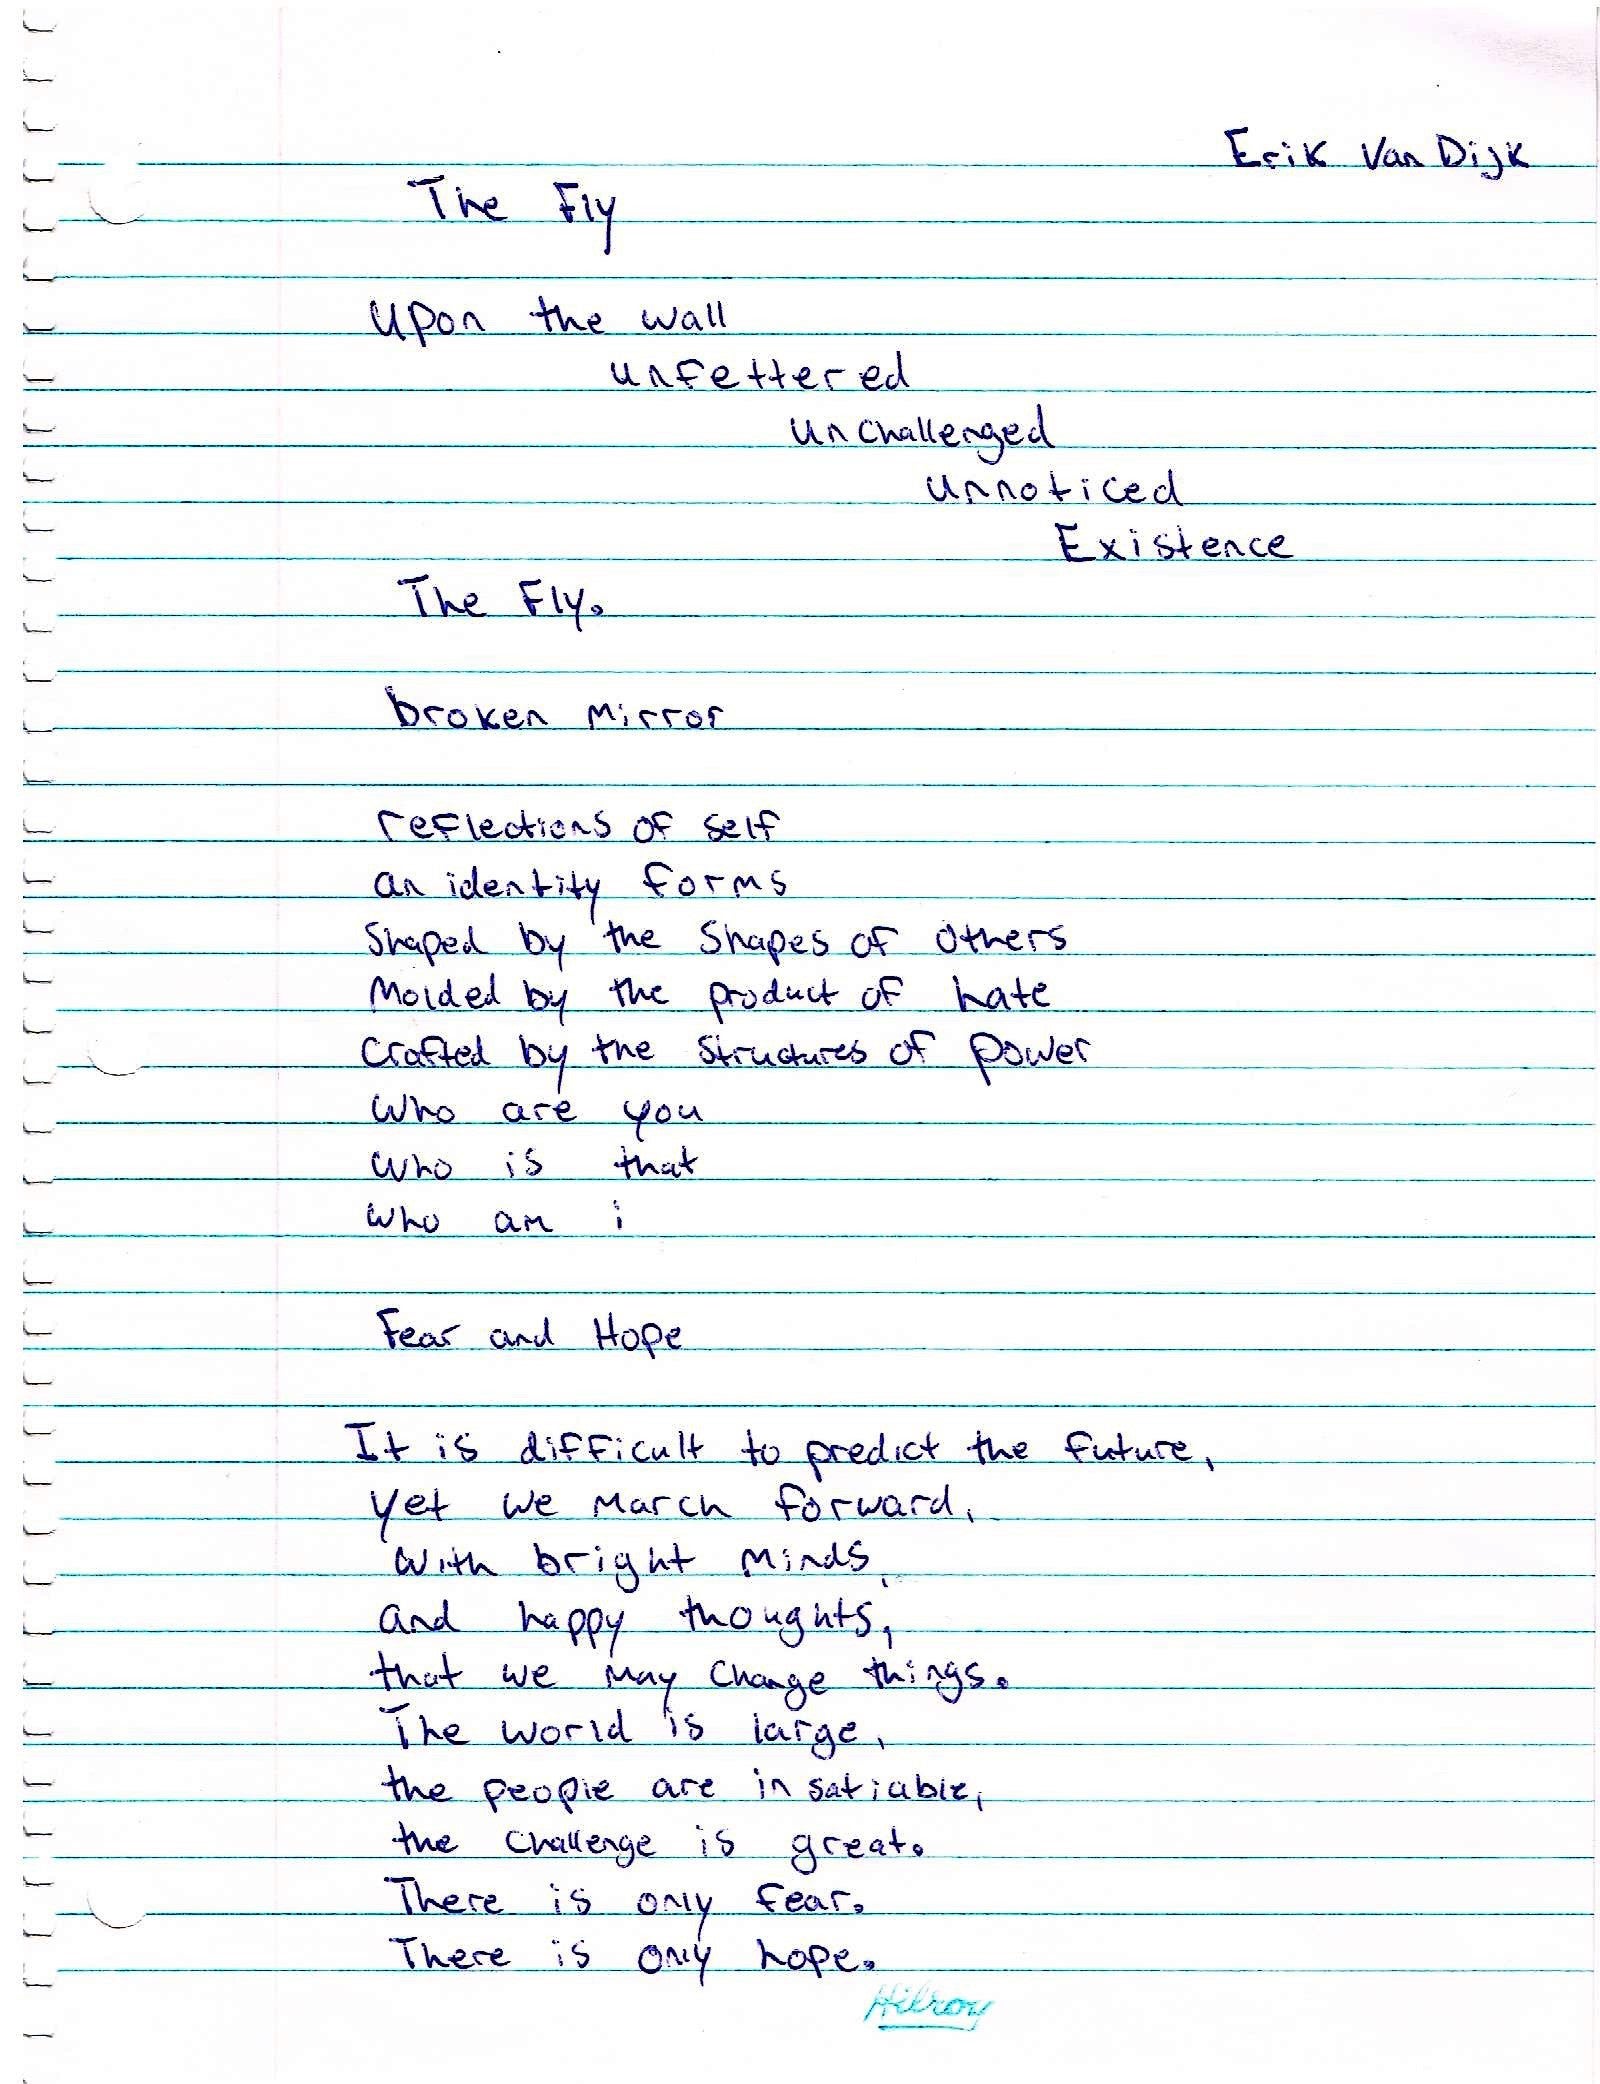 Erik Van Dijk
The Fly
Upon the wall
unfettered
unchallenged
unnoticed
Existence
The Fly.
broken mirror
reflections of self
an identity forms
Shaped by the Shapes of others
Molded by the product of hate
Crafted by the structures of power
Who are you
Who is that
Who am i
Fear and Hope
It is difficult to predict the future,
Yet we march forward,
with bright minds,
and happy thoughts,
that we may change things.
The world is large,
the people are insatiable,
the challenge is great.
There is only fear.
There is only hope.
Hilroy